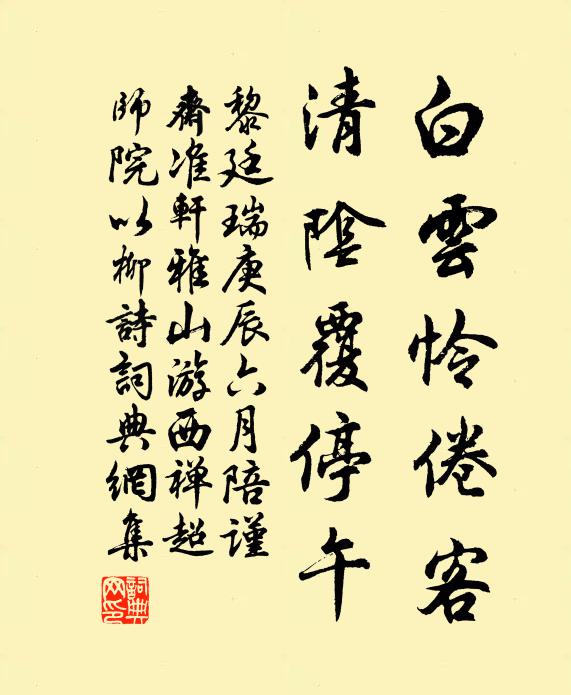 白雲怜倦客
清陰覆停午
黎廷瑞庚辰六月陪謹
齋准軒雅山游西禅超
師院以柳詩詞典網集
詞典
网印